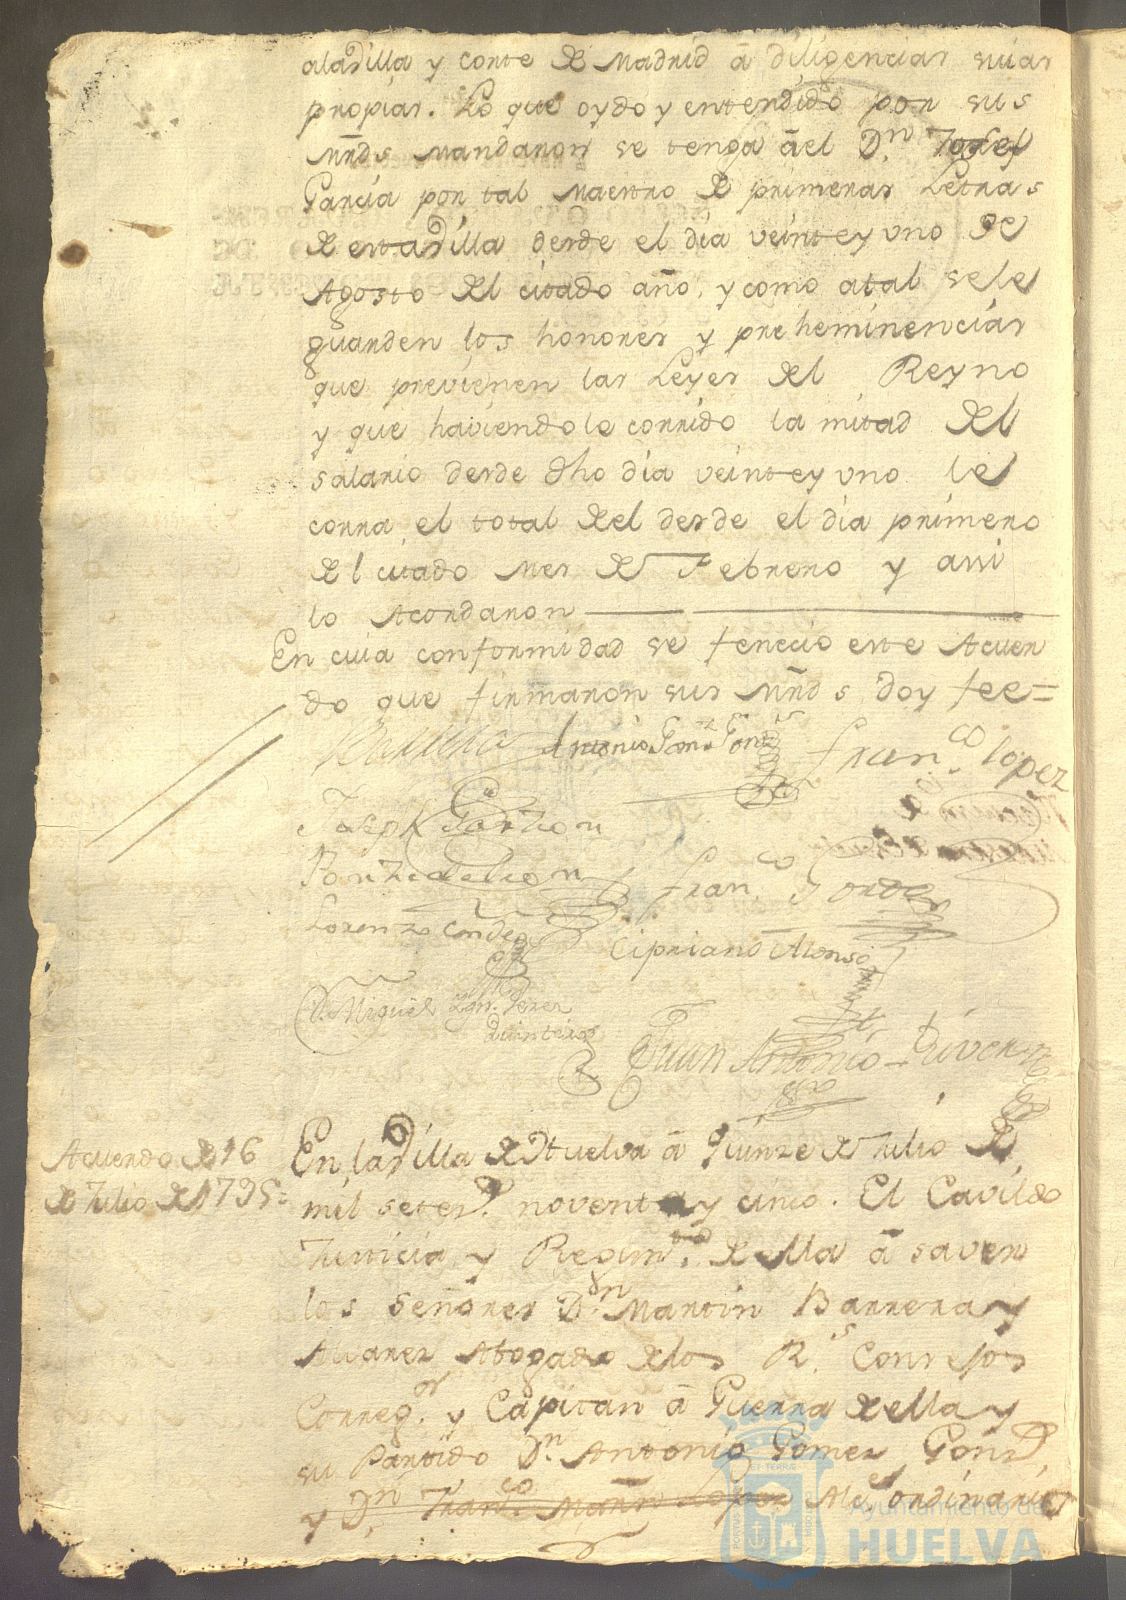 alavilla y corte de Madrid â diligencias suias
propias. Lo que oydo y entendido por sus
Mrds Mandaron se tenga âel Dn. Josef
Garcia por tal Maestro de primeras Letras
de estavilla desde el dia veinte y uno de
Agosto del citado año, y como atal sele
guarden los honores y preheminencias
que previenen las Leyes del Reyno
y que haviendole corrido la mitad del
salario desde dho dia veinte y uno le
corra el total del desde el dia primero
del citado mes de Febrero y assi
lo Acordaron
En cuia conformidad se feneció este Acuer
do que firmaron sus Mrds doy fee=
Barrera Antonio Franco Lopez
Joseph Garzon
Ponze de Leon Franco Jordan
Lorenzo Conde
Cipriano Alonso
D. Miguel Ign. Perez
Quintero
Juan Antonio Rivera
Acuerdo de 16
de Julio de 1795=
En lavilla de Huelva â quinze de Julio de
mil setes. noventa y cinco. El Cavildo
Justicia y Regimto. de ella â saver
los Señores Dn. Martin Barrera y
Alvarez Abogado delos Rs. Consejos
Correg.or y Capitan â Guerra de ella y
su Partido Dn. Antonio Gomez Gonz
y Dn. Franco. Mañn Lopez Alc.es ordinarios
Ayuntamiento de
HUELVA